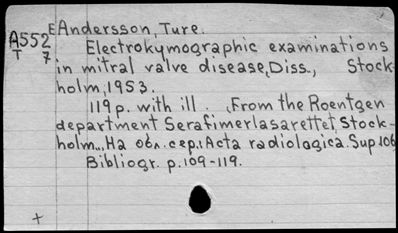 E Andersson, Ture.
A552
T 7
Electrokymographic examinations
in mitral valve disease, Diss., Stock-
holm, 1953.
119 p. with ill. From the Roentgen
department Serafimerlasarettet, Stock-
holm., На обл. сер.: Acta radiologica. Sup 106
Bibliogr. p. 109-119.
+